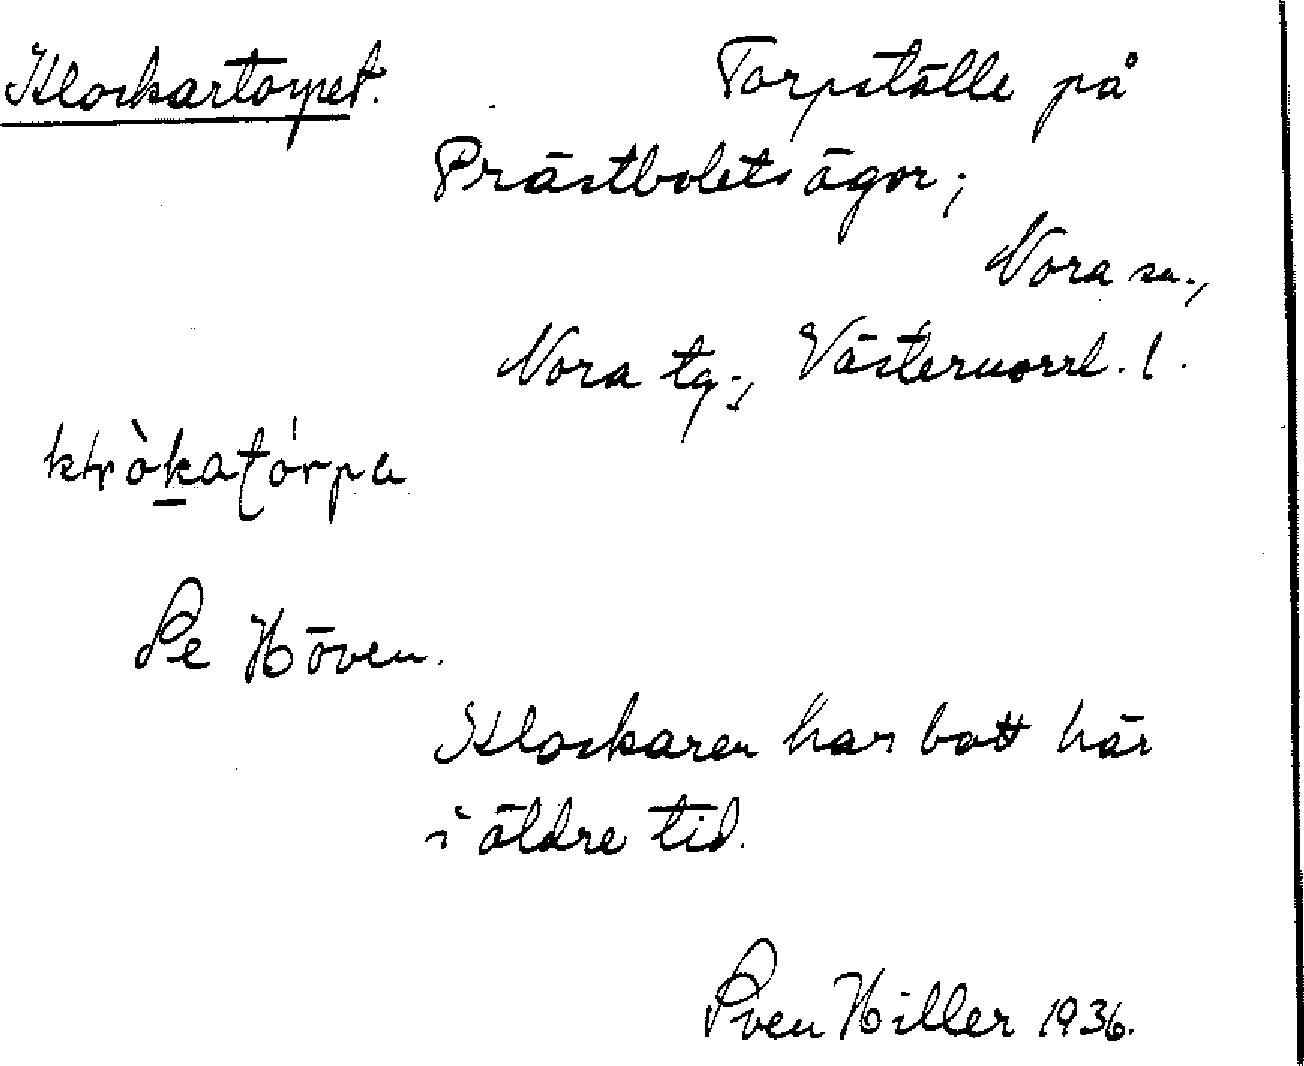 Klockartorpet. Torpställe på
Prästbolets ägor;
Nora sn.,
Nora tg., Västernorrl. l.
Se Höven.
Klockaren har bott här
i äldre tid.
Sven Hiller 1936.